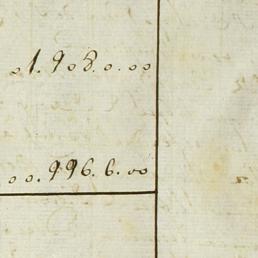 01.908.0.00
00.996.6.00